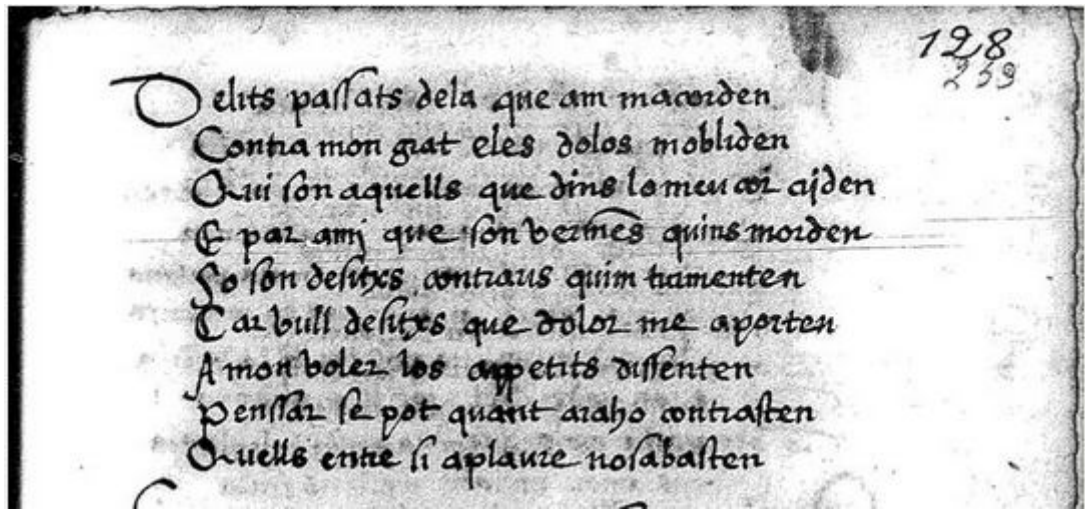 128
259
Delits passats dela que am macorden
Contra mon grat eles dolos mobliden
Qui son aquells que dins lo meu cor criden
E par amj que son vermes quins morden
So son desitxs contraris quim turmenten
Car vull desitxs que dolor me aporten
A mon voler los appetits dissenten
Penssar se pot quant araho contrasten
Quells entre si aplaure nosabasten